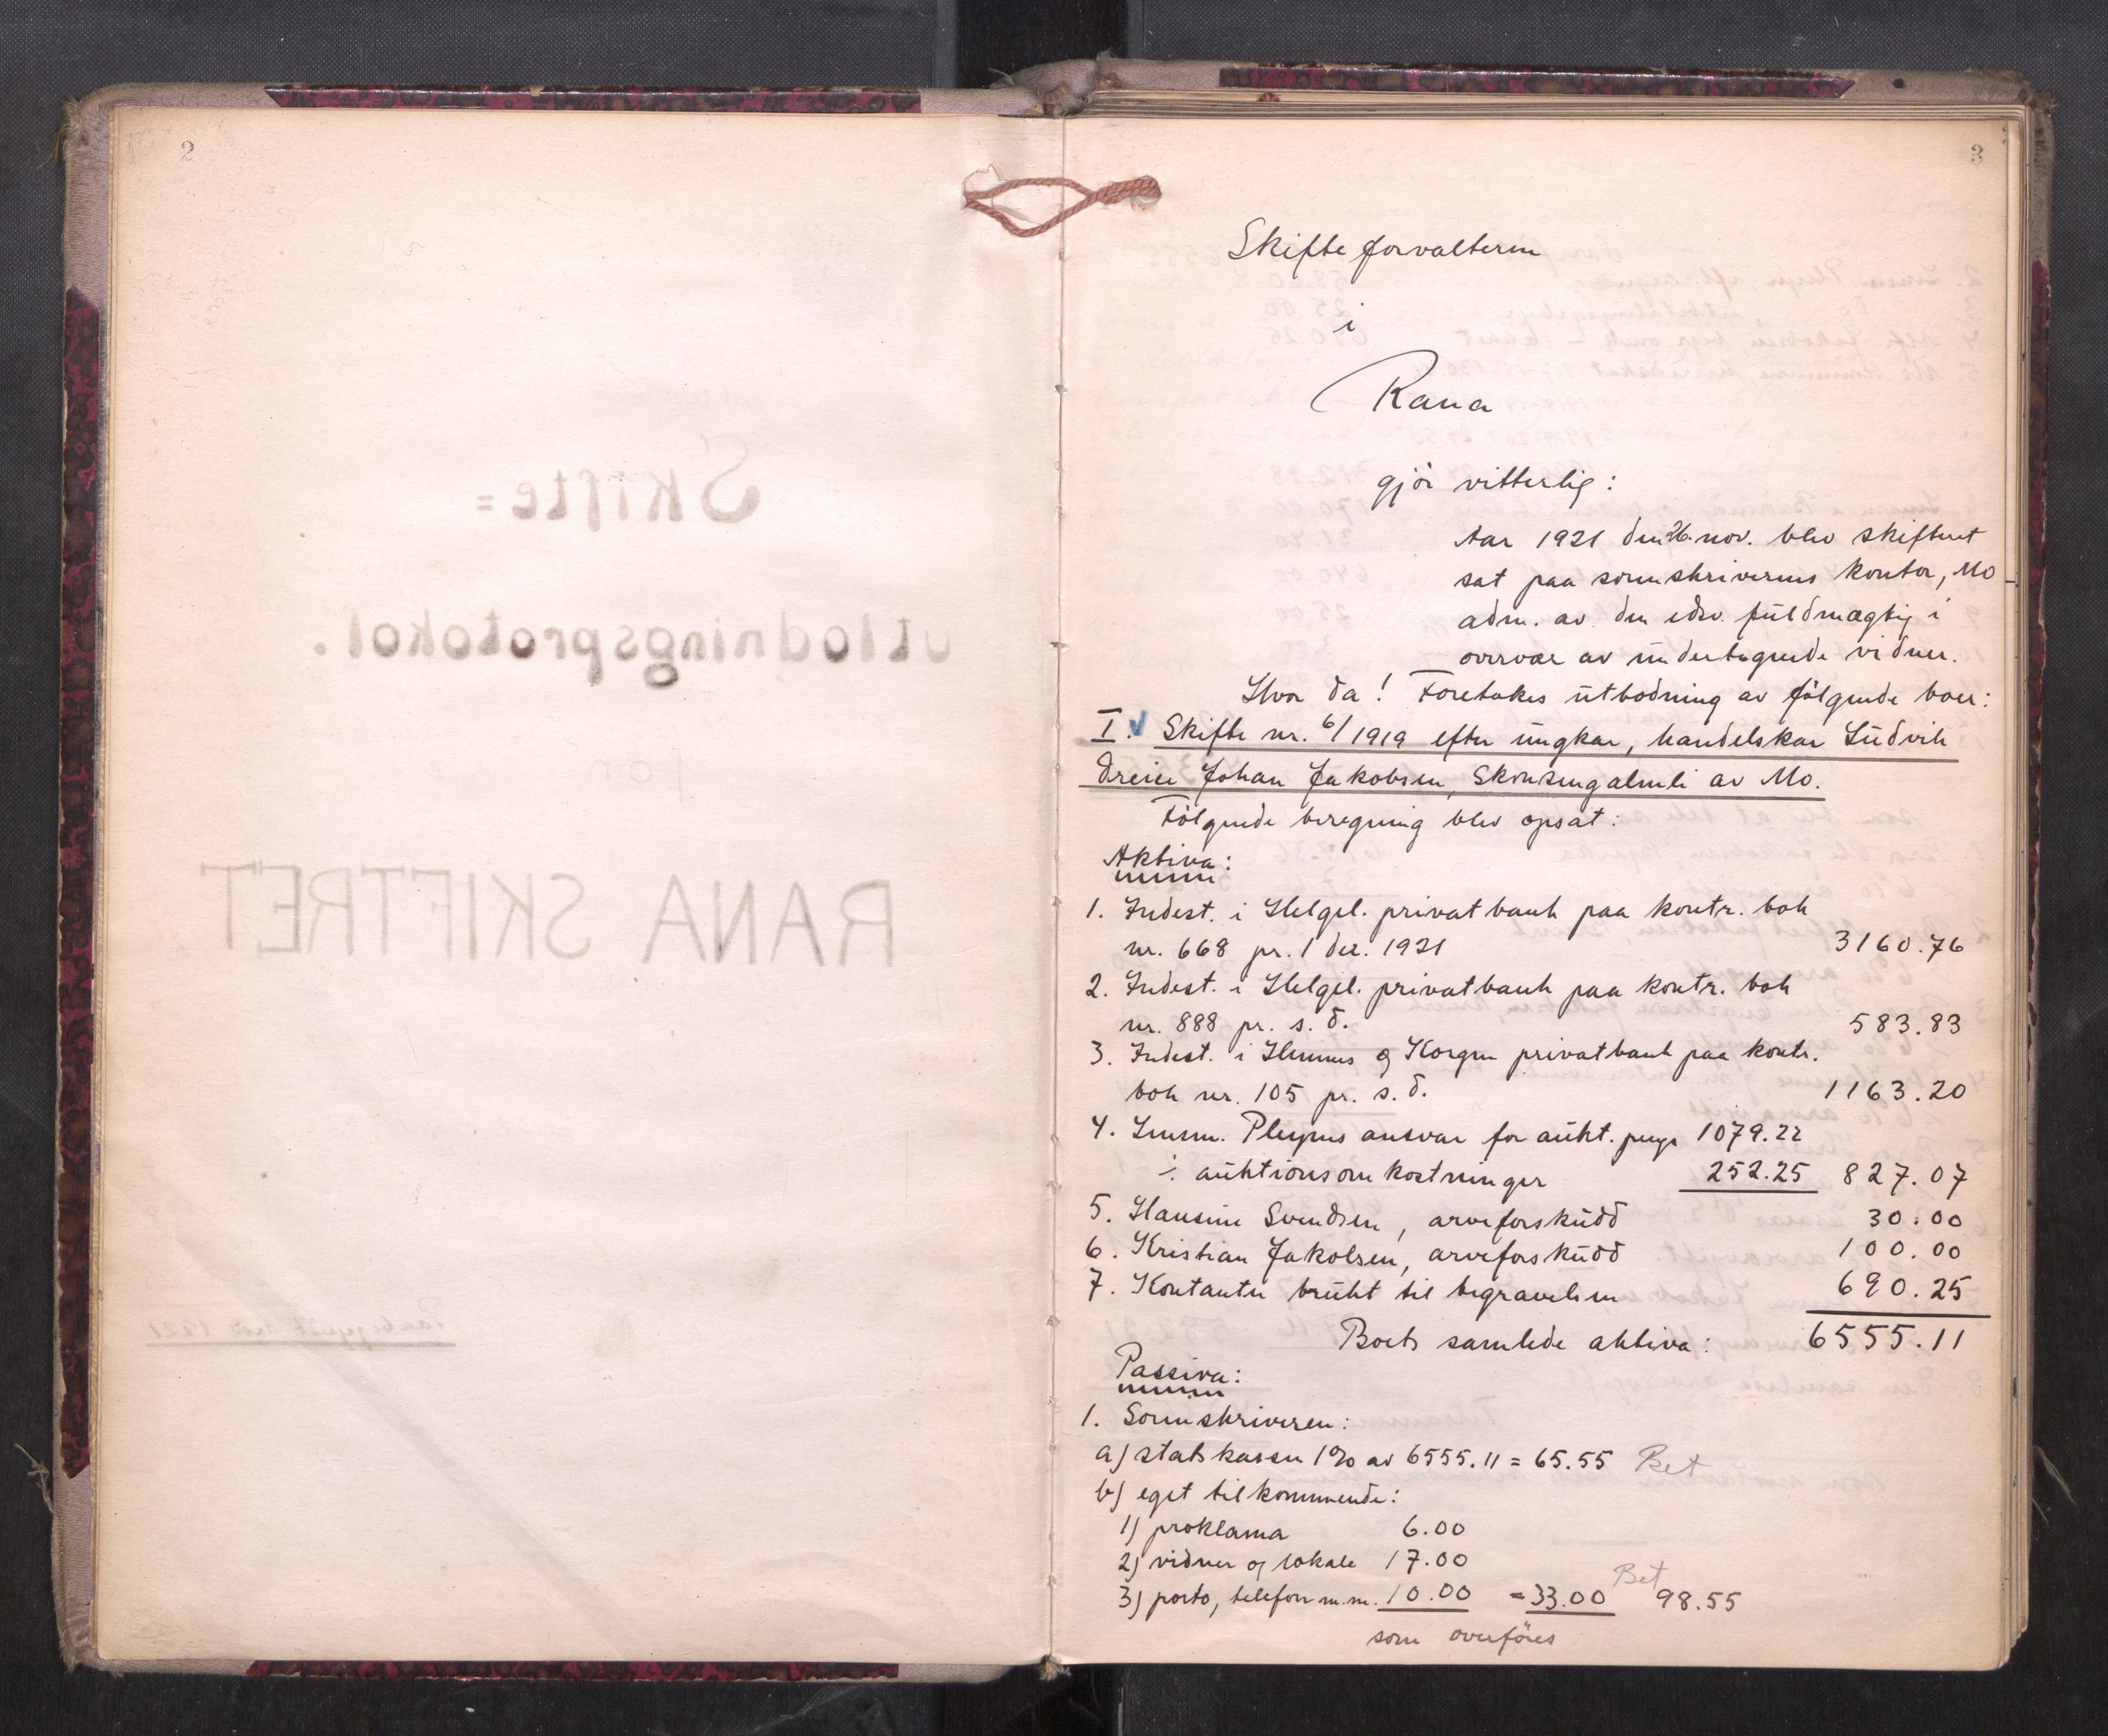 2
3
Skifteforvalteren
i
Rana
gjör vitterlig:
Aar 1921 den 26. nov. blev skifteret
sat paa sorenskriverens kontor, Mo –
adm. av den edsv. fuldmægtig i
overvær av undertegnede vidner.
Hvor da! Foretokes utlodning av følgende boer:
I. Skifte nr. 6/1919 efter ungkar, handelskar Ludvik
Dreier Johan Jakobsen, av Mo.
Følgende beregning blev opsat:
Aktiva:
1. Indest. i Helgel. privatbank paa kontr. bok
nr. 668 pr. 1 des. 1921 3160.76
2. Indest. i Helgel. privatbank paa kontr. bok
nr. 888 pr. s. d. 583.83
3. Indest. i Hemnes og Korgen privatbank paa kontr.
bok nr. 105 pr. s. d. 1163.20
4. Lensm. Pleyms ansvar for aukt. penge 1079.22
÷ auktionsomkostninger 252.25 827.07
5. Hansine Svendsen, arveforskudd 30.00
6. Kristian Jakobsen, arveforskudd 100.00
7. Kontanter brukt til begravelsen 690.25
Boets samlede aktiva: 6555.11
Passiva:
1. Sorenskriveren:
a) statskassen 1% av 6555.11 = 65.55 Bet
b) eget tilkommende:
1) proklama 6.00
2) vidner og lokale 17.00
3) porto, telefon m.m. 10.00 = 33.00 Bet 98.55
som overføres
Skifte=
utlodningsprotokol.
for
RANA SKIFTRET
Paabegynt nov 1921